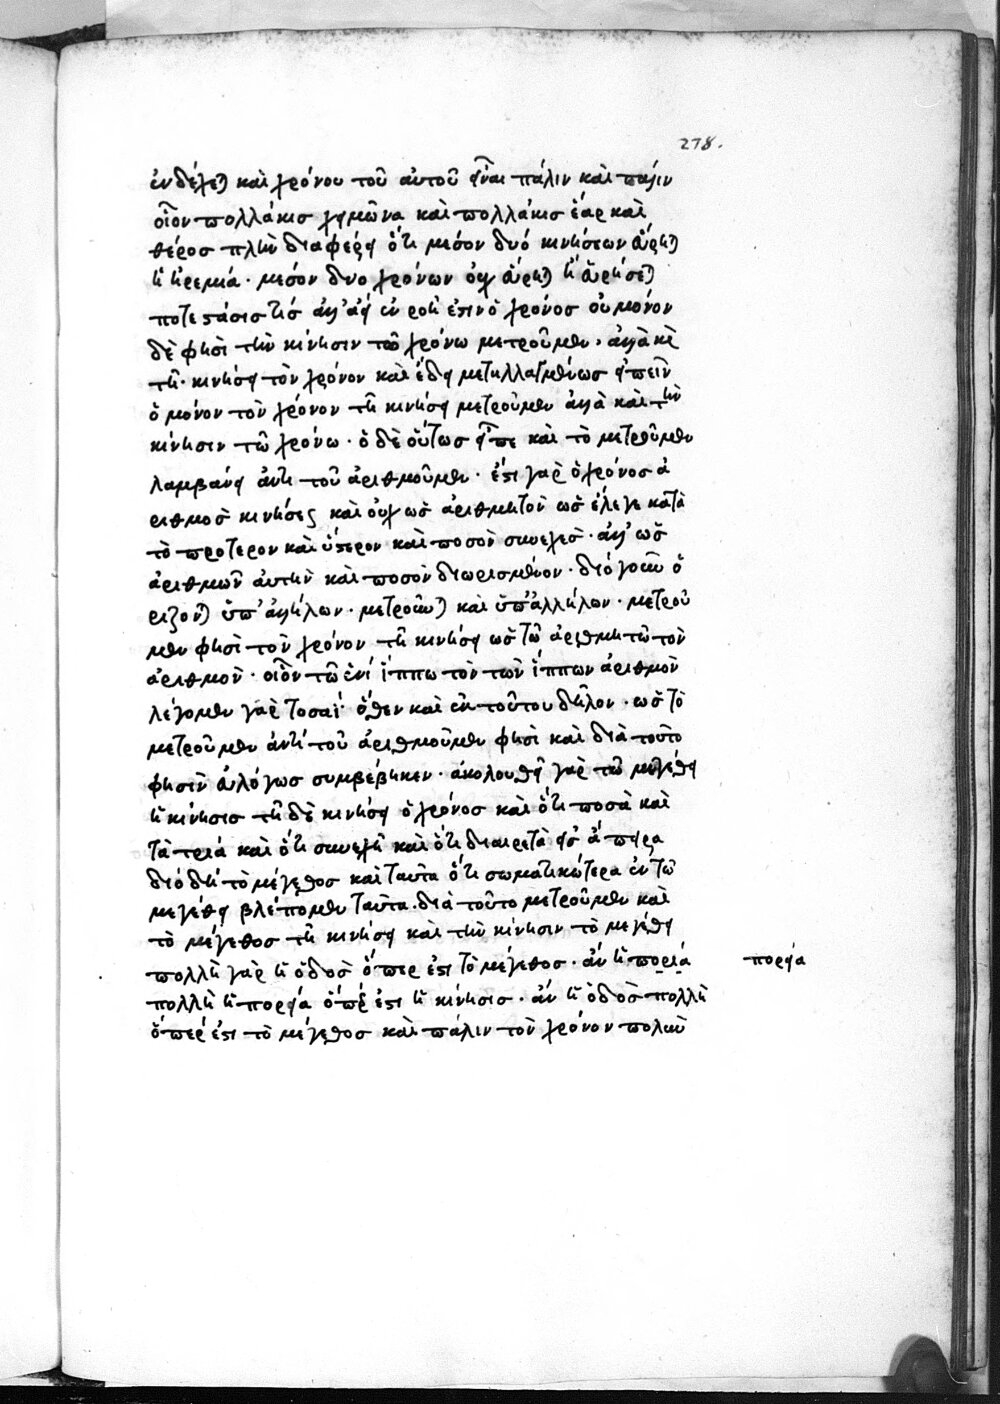 278.
ἐνδέχεται καὶ χρόνου τοῦ αὐτοῦ εἶναι πάλιν καὶ πάλιν
οἷον πολλάκις χειμῶνα καὶ πολλάκις ἔαρ καὶ
θέρος πλὴν διαφέρει ὅτι μέσον δυό κινήσεων
ἢ ἠρεμία · μέσον δυο χρόνων οὐκ
ποτε στάσις τίς ἀλλ' ἀεὶ ἐν ροῇ ἐστιν ὁ χρόνος οὐ μόνον
δὲ φησὶ τὴν κίνησιν τῶ χρόνω μετροῦμεν · ἀλλὰ καὶ
τῆ κινήσει τὸν χρόνον καὶ ἔδει μετηλλαγμένως εἰπεῖν
ὁ μόνον τὸν χρόνον τῆ κινήσει μετροῦμεν ἀλλὰ καὶ τὴν
κίνησιν τῶ χρόνω · ὁ δὲ οὕτως εἶπε καὶ τὸ μετροῦμεν
λαμβάνει ἀντὶ τοῦ ἀριθμοῦμεν · ἔστι γὰρ ὁ χρόνος ἀ
ριθμὸς κινήσεως καὶ οὐχ ὡς ἀριθμητὸν ὡς ἔλεγε κατὰ
τὸ πρότερον καὶ ὕστερον καὶ ποσὸν συνεχὲς · ἀλλ' ὡς
ἀριθμῶν αὐτὴν καὶ ποσὸν διωρισμένον · διό γοῦν ὁ
ρίζονται ὑπ' ἀλλήλων · μετροῦνται καὶ ὑπ' ἀλλήλων · μετροῦ
μεν φησὶ τὸν χρόνον τῆ κινήσει ὡς τῶ ἀριθμητῶ τὸν
ἀριθμὸν · οἷον τῶ ἑνί ἵππω τὸν τῶν ἵππων ἀριθμὸν
λέγομεν γὰρ τοσαί · ὅθεν καὶ ἐκ τούτου δῆλον · ὡς τὸ
μετροῦμεν ἀντί τοῦ ἀριθμοῦμεν φησὶ καὶ διὰ τοῦτο
φησὶν εὐλόγως συμβέβηκεν · ἀκολουθεῖ γὰρ τῶ μεγέθει
ἡ κίνησις τῆ δὲ κινήσει ὁ χρόνος καὶ ὅτι ποσὰ καὶ
τὰ τριά καὶ ὅτι συνεχῆ καὶ ὅτι διαιρετὰ εἰς ἄπειρα
διό δὴ τὸ μέγεθος καὶ ταῦτα ὅτι σωματικώτερα ἐν τῶ
μεγέθει βλέπομεν ταῦτα · διὰ τοῦτο μετροῦμεν καὶ
τὸ μέγεθος τῆ κινήσει καὶ τὴν κίνησιν τὸ μεγέθει
πολλὴ γὰρ ἡ ὁδὸς ὅπερ ἐστι τὸ μέγεθος · ἂν ἡ πορία πορεία
πολλὴ ἡ πορεία ὅπέρ ἐστι ἡ κίνησις · ἂν ἡ ὁδὸς πολλὴ
ὅπερ ἐστι τὸ μέγεθος καὶ πάλιν τὸν χρόνον πολὺν